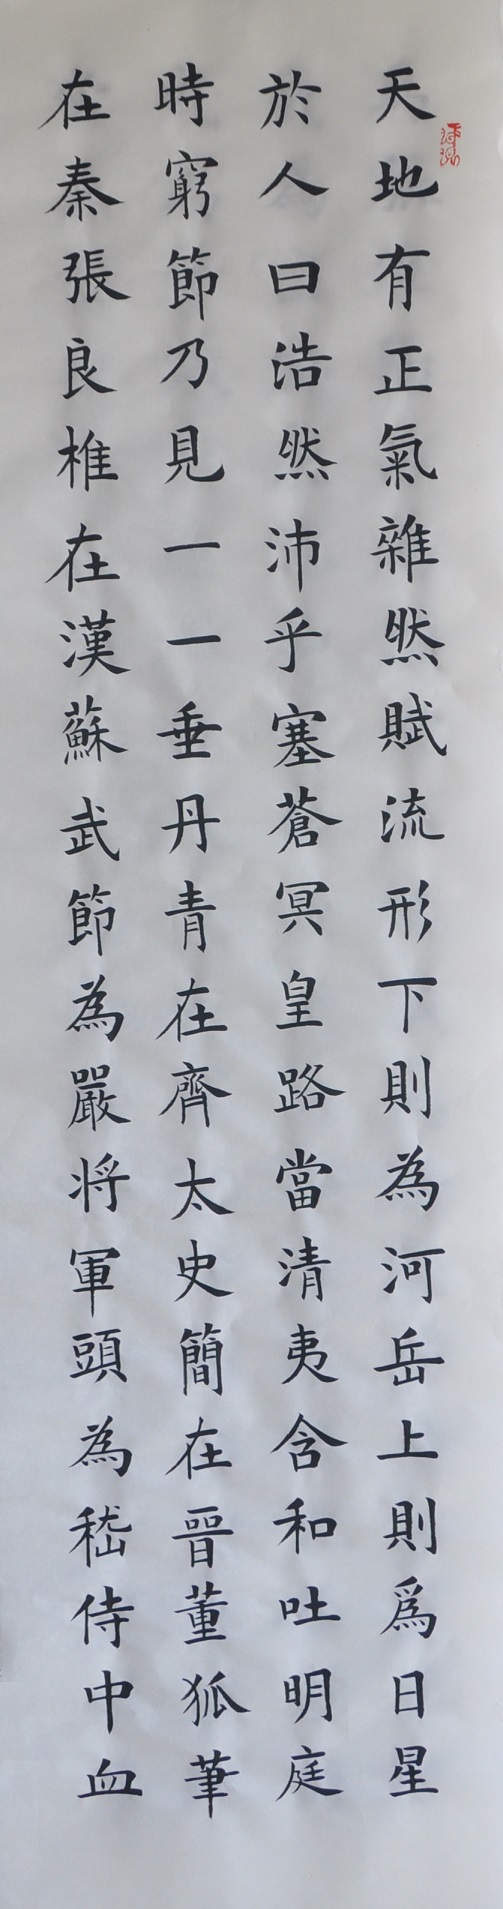 天地有正氣雜然賦流形下則為河岳上則爲日星
於人曰浩然沛乎塞蒼冥皇路當清夷含和吐明庭
時窮節乃見一一垂丹青在齊太史簡在晉董狐筆
在秦張良椎在漢蘇武節為嚴将軍頭為嵇侍中血